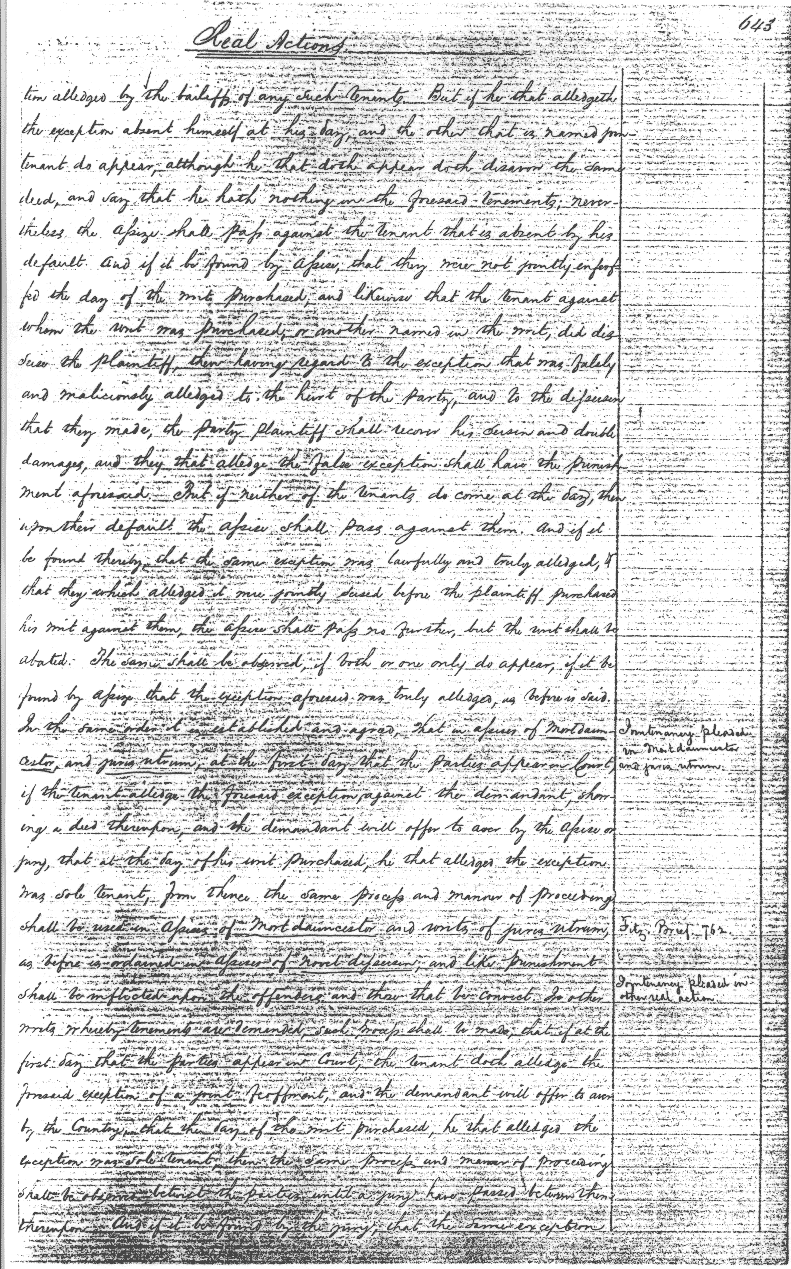 643
Real Actions
tion alledged by the bailiffs of any such tenants. But if he that alledgeth
the exception absent himself at his day, and the other that is named join-
tenant do appear, although he that doth appear doth disavow the same
deed, and say that he hath nothing in the foresaid tenements, never-
theless the Assize shall pass against the tenant that is absent by his
default. And if it be found by Assise, that they were not jointly enfeof-
fed the day of the writ purchased, and likewise that the tenant against
whom the writ was purchased, or another named in the writ, did dis
seise the plaintiff, then having regard to the exception that was falsely
and maliciously alledged to the hurt of the party, and to the disseisin
that they made, the party plaintiff shall recover his seisin and double
damages, and they that alledge the false exception shall have the punish
ment aforesaid. But if neither of the tenants do come at the day, then
upon their default the Assise shall pass against them. And if it
be found thereby, that the same exception was lawfully and truly alledged, &
that they which alledged it were jointly seised before the plaintiff purchased
his writ against them, the Assise shall pass no further, but the writ shall be
abated. The same shall be observed, if both or one only do appear, if it be
found by Assize that the exception aforesaid was truly alledged, as before is said.
In the same order it is established and agreed, that in assises of Mortdaun-
cestor, and juris utrum, at the first day that the parties appear in Court,
if the tenant alledge the foresaid exception against the demandant, shew
ing a deed thereupon, and the demandant will offer to aver by the Assise or
jury, that at the day of his writ purchased, he that alledged the exception
was sole tenant, from thence the same process and manner of proceeding
shall be used in Assises of Mortdauncestor and writs of juris utrum,
as before is ordained in Assises of novel disseisin, and like punishment
shall be inflicted upon the offenders and those that be convict. In other
writs whereby tenements are demanded such process shall be made, that if at the
first day that the parties appear in Court, the tenant doth alledge the
foresaid exception of a joint feoffment, and the demandant will offer to aver
by the Country, that the day of the writ purchased, he that alledged the
exception was sole tenant, then the same process and manner of proceeding
shall be observed betwixt the parties, until a jury have passed between them
thereupon. And if it be found by the jury, that the same exception
Jointenancy pleaded
in Mortdauncestor
and juris utrum.
Fitz. Brief. 762.
Jointenancy pleaded in
other real action.